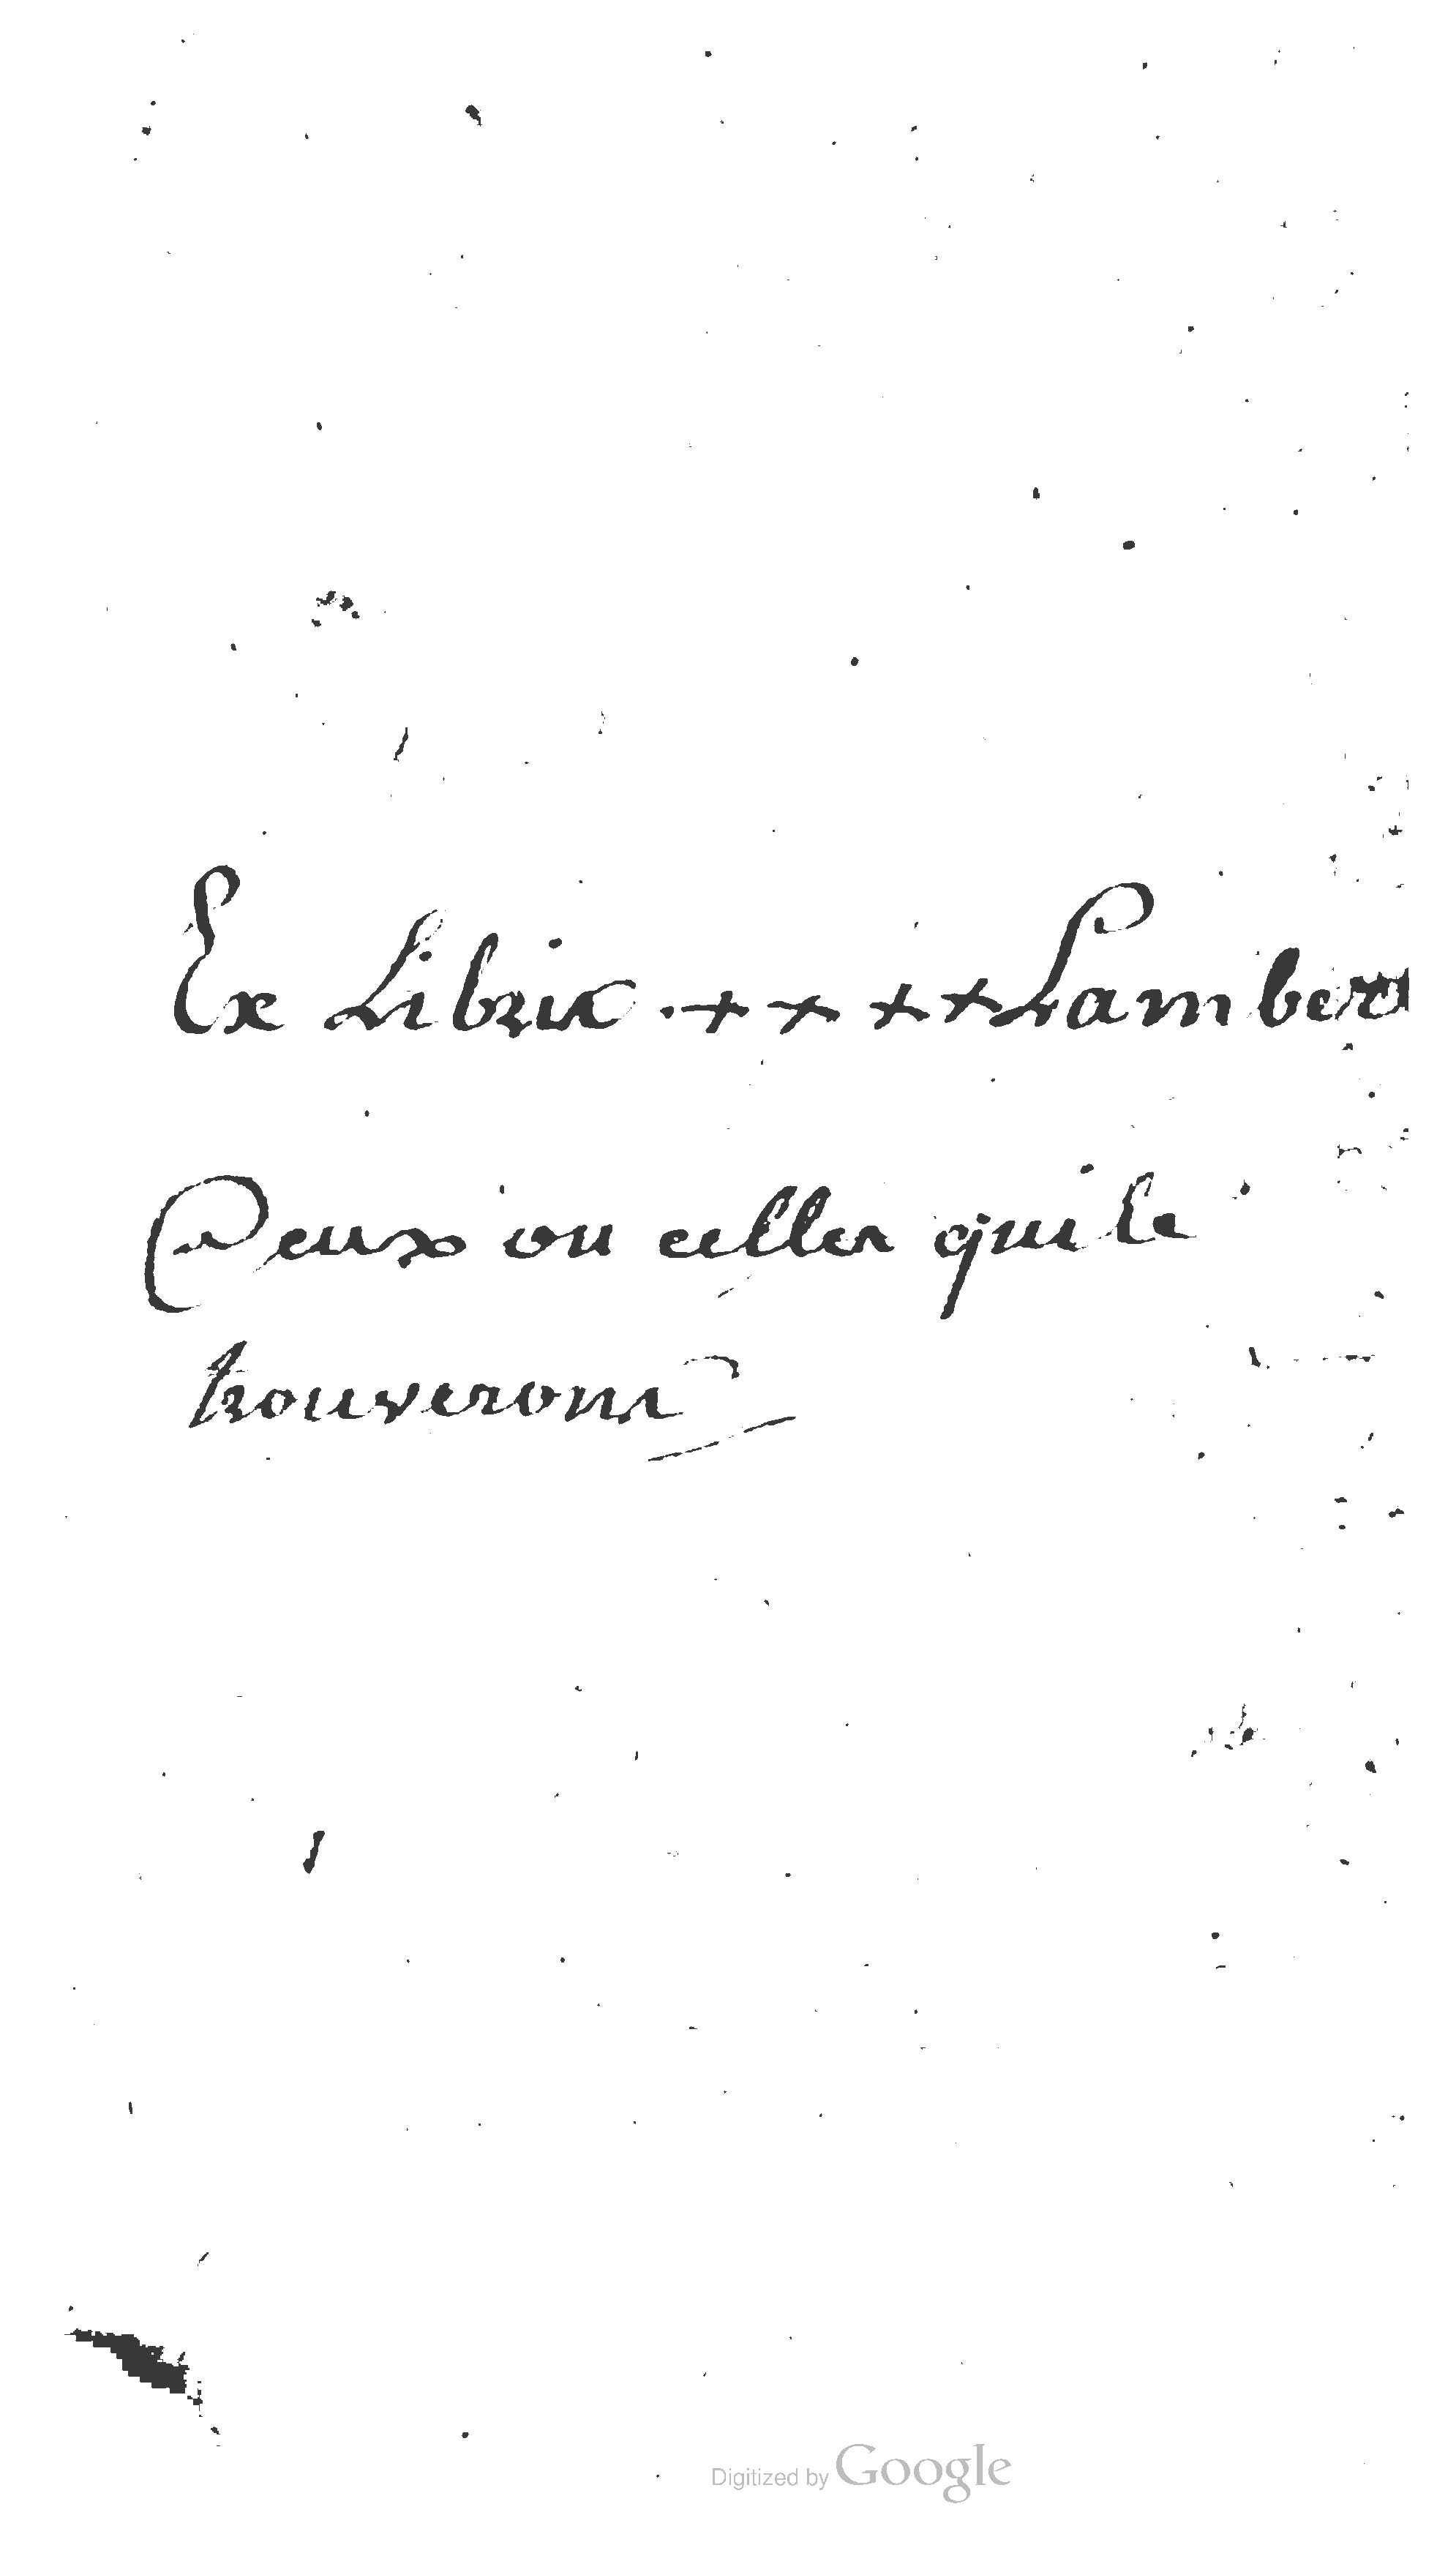 Ex Libris . + + + + Lambert
Ceux ou celles qui le
trouveront
Digitized by Google